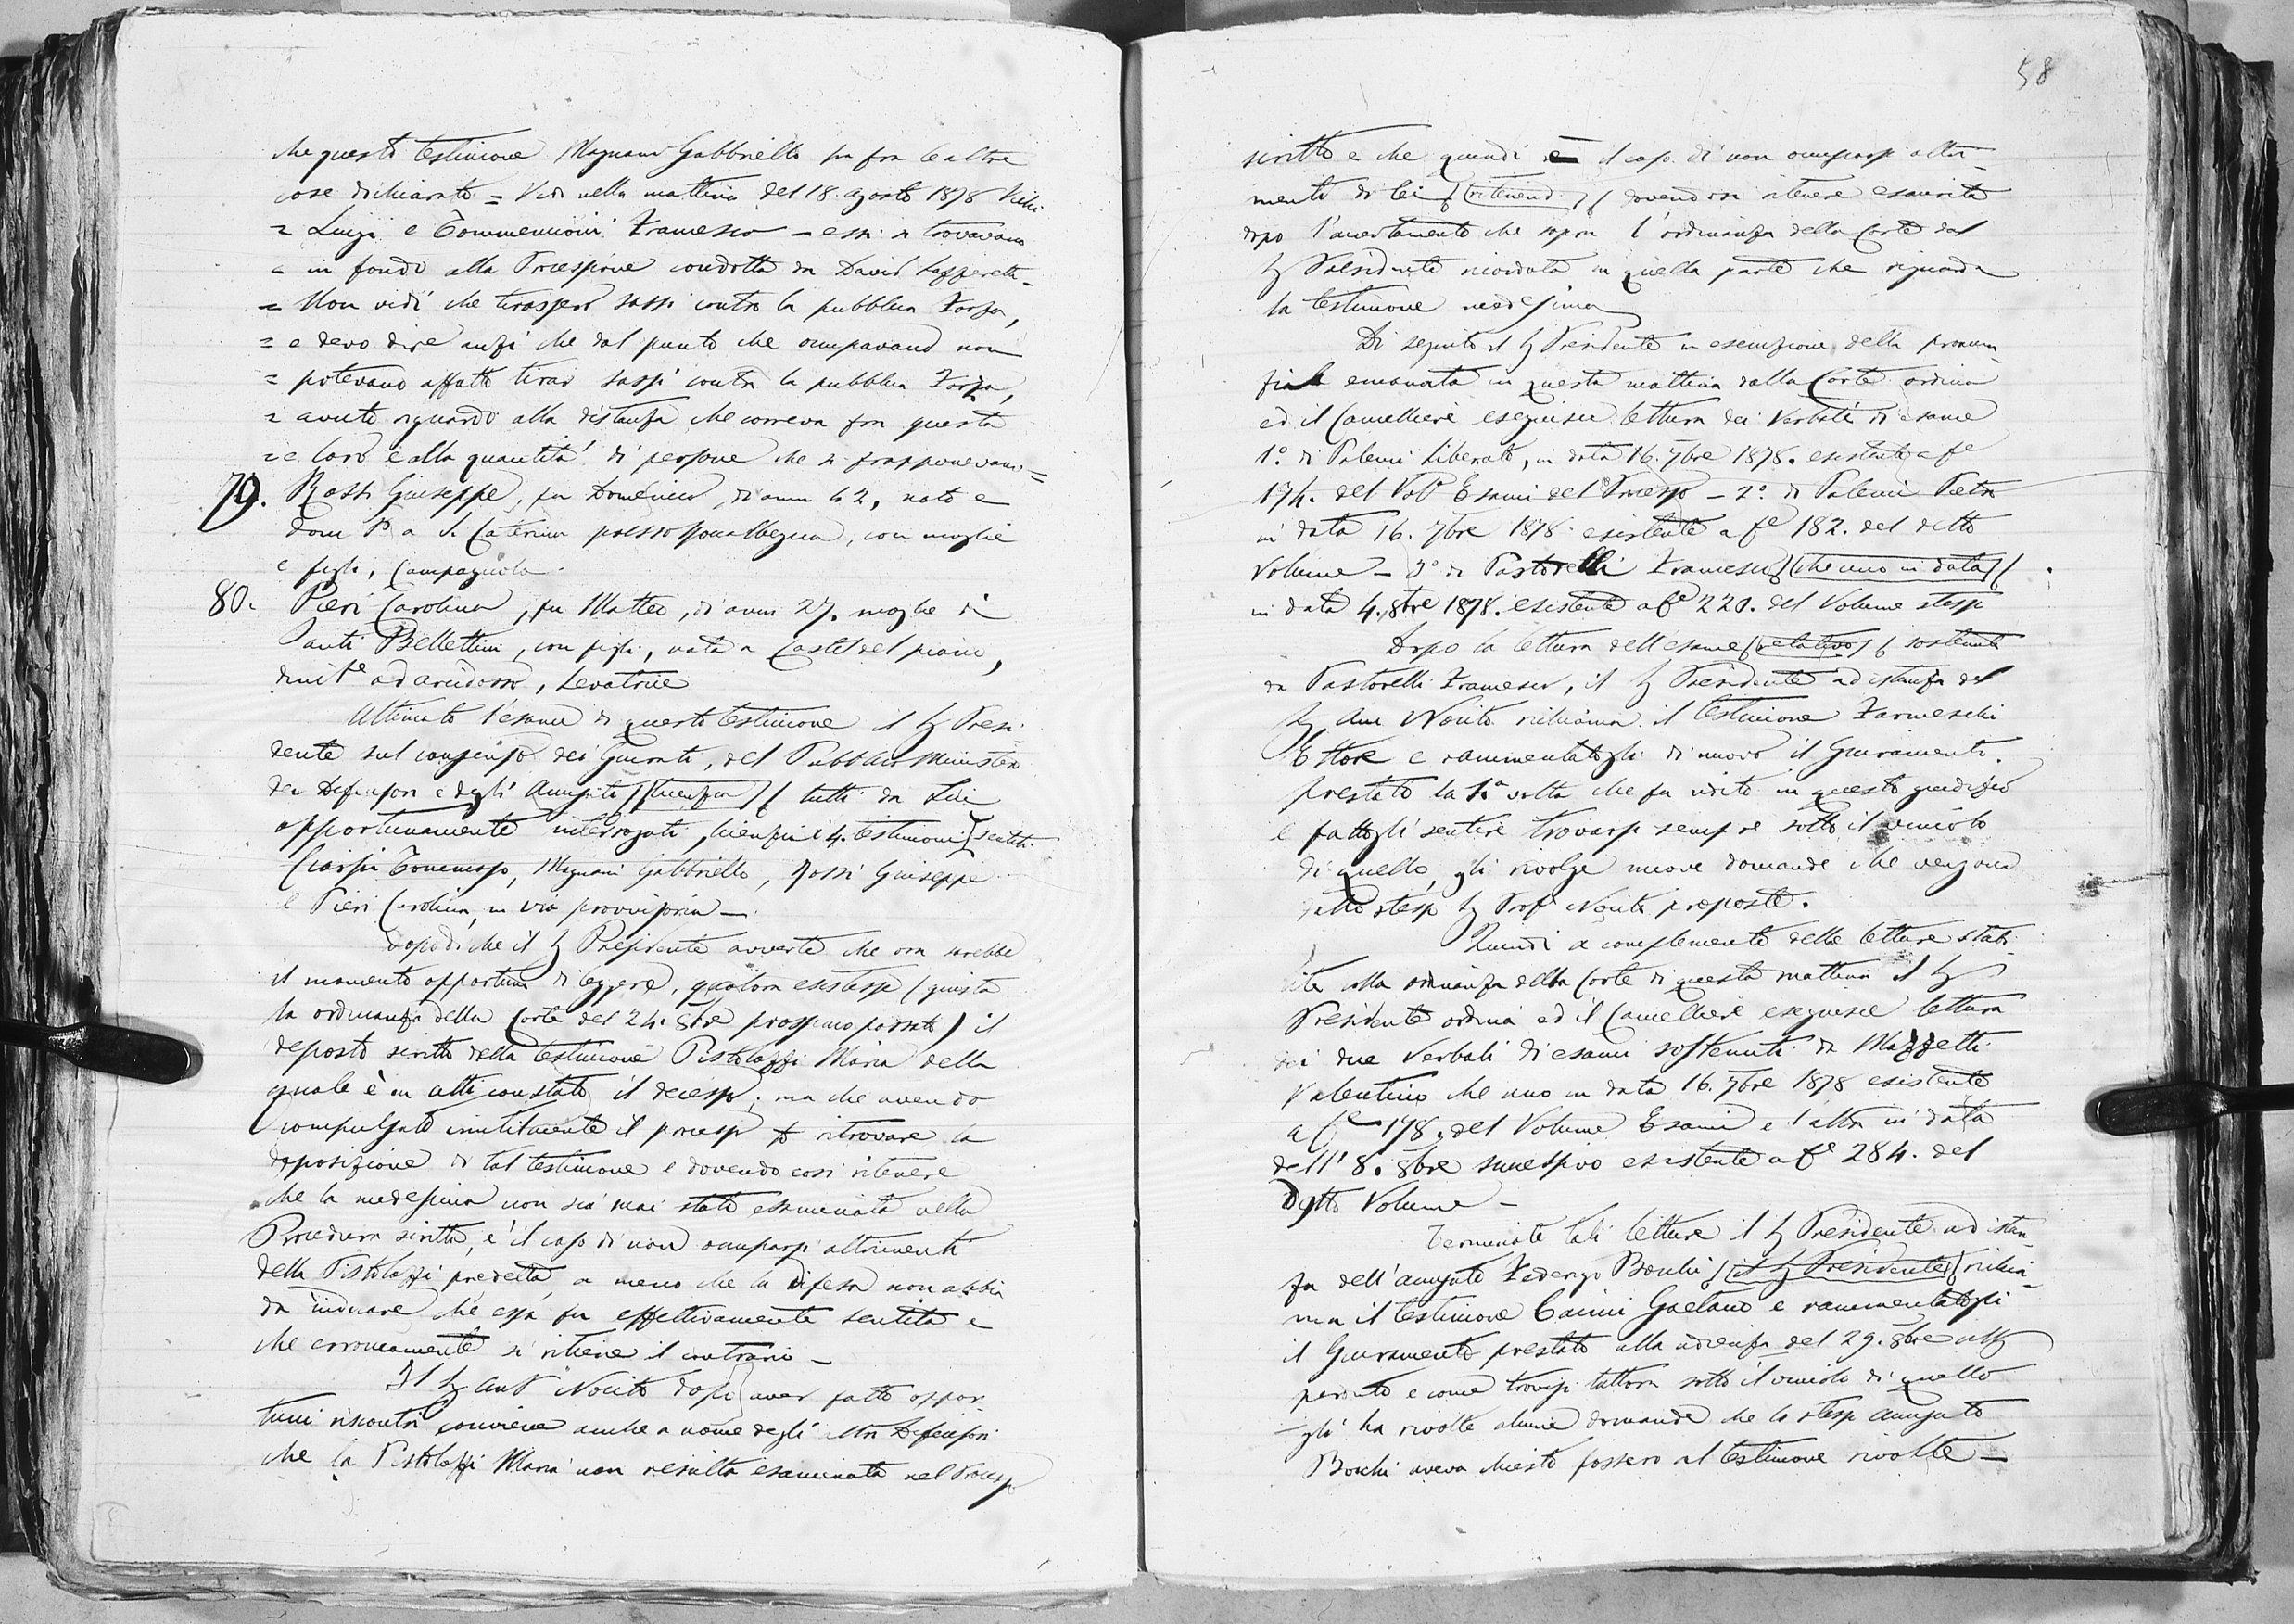 che questo testimone Magnani Gabbriello ha fra le altre
cose dichiarato = Vidi nella mattina del 18. agosto 1878 Vichi
= Luigi e Tommencioni Francesco – essi si trovavano
= in fondo alla Processione condotta da David Lazzeretti –
= Non vidi che tirassero sassi contro la pubblica Forza,
= e devo dire anzi che dal punto che occupavano non
= potevano affatto tirar sassi contro la pubblica Forza,
= avuto riguardo alla distanza che correva fra questa
= e loro e alla quantità di persone che si frapponevano =
79. Rossi Giuseppe, fu Domenico, di anni 62, nato e
dom to a S. Caterina presso Roccalbegna, con moglie
e figli, Campagnolo.
80. Pieri Carolina, fu Matteo, di anni 27. moglie di
Santi Bellettini, con figli, nata a Castel del piano,
dimte ad Arcidosso, Levatrice
Ultimato l'esame di questo testimone il Sig Presi-
dente sul consenso dei Giurati, del Pubblico Ministero
dei Difensori e degli Accusati (licenzia) tutti da Lui
opportunamente interrogati, licenzia i 4. testimoni sentiti
Ciarpi Tommaso, Magnani Gabbriello, Rossi Giuseppe
e Pieri Carolina, in via provvisoria –
Dopo di che il Sig Presidente avverte che ora sarebbe
il momento opportuno di leggere, qualora esistesse (giusta
la ordinanza della Corte del 24. 8bre prossimo passato) il
deposto scritto della testimone Pistolozzi Maria della
quale è in atti constato il decesso; ma che avendo
compulsato inutilmente il processo p ritrovare la
deposizione di tal testimone e dovendo così ritenere
che la medesima non sia mai stata esaminata nella
Procedura scritta, è il caso di non occuparsi altrimenti
della Pistolozzi predetta, a meno che la difesa non abbia
da indicare che essa fu effettivamente sentita e
che erroneamente si ritiene il contrario –
Il Sig Avv Nocito dopo aver fatto oppor-
tuni riscontri conviene anche a nome degli altri Difensori
che la Pistolozzi Maria non risulta esaminata nel Processo
58
scritto e che quindi è il caso di non occuparsi altri-
menti di lei (ritenend) dovendosi ritenere esaurita
dopo l'accertamento che sopra l'ordinanza della Corte dal
Sig Presidente ricordata in quella parte che riguarda
la testimone medesima
Di seguito il Sig Presidente in esecuzione della pronun-
zia emanata in questa mattina dalla Corte ordina
ed il Cancelliere eseguisce lettura dei Verbali di esame
1.° di Palenci Liberato, in data 16. 7bre 1878. esistente a fe
174. del Vole Esami del Processo – 2.° di Palenci Pietro
in data 16. 7bre 1878 esistente a fe 182. del detto
Volume – 3° di Pastorelli Francesco (che uno in data)
in data 4. 8bre 1878. esistente a fe 220. del Volume stesso
Dopo la lettura dell'esame (relativo) sostenuto
da Pastorelli Francesco, il Sig Presidente ad istanza del
Sig Avv Nocito richiama il testimone Farneschi
Ettore e rammentatogli di nuovo il Giuramento
prestato la 1.a volta che fu udito in questo giudizio
e fattogli sentire trovarsi sempre sotto il vincolo
di quello, gli rivolge nuove domande che vengono
dallo stesso Sig Profe Nocito proposte.
Quindi a complemento delle letture stabi-
lite colla ordinanza della Corte di questa mattina il Sig
Presidente ordina ed il Cancelliere eseguisce lettura
dei due Verbali di esami sostenuti da Mazzetti
Valentino che uno in data 16. 7bre 1878 esistente
a fe 178. del Volume Esami e l'altro in data
dell'8. 8bre successivo esistente a fe 284. del
detto Volume –
Terminate tali letture il Sig Presidente ad istan-
za dell'accusato Federigo Bocchi (il Sig Presidente) richia-
ma il testimone Caini Gaetano e rammentatogli
il Giuramento prestato alla udienza del 29. 8bre
e come trovisi tuttora sotto il vincolo di quello
gli ha rivolte alcune domande che lo stesso accusato
Bocchi aveva chiesto fossero al testimone rivolte –